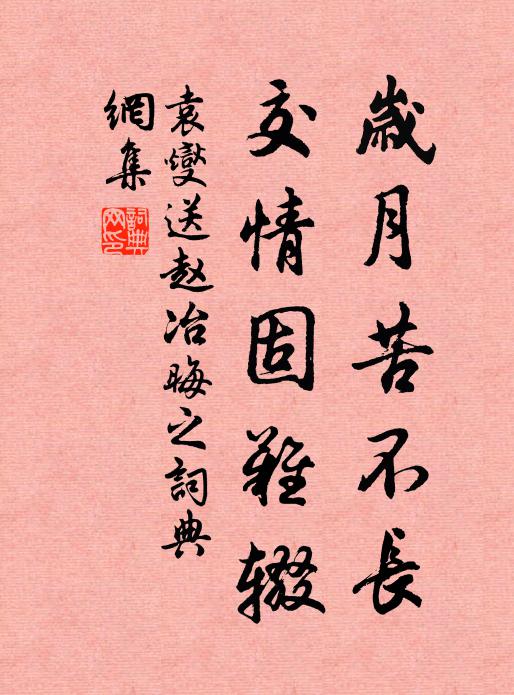 歲月苦不長
交情固難辍
袁燮送赵冶晦之詞典
網集
詞典网印